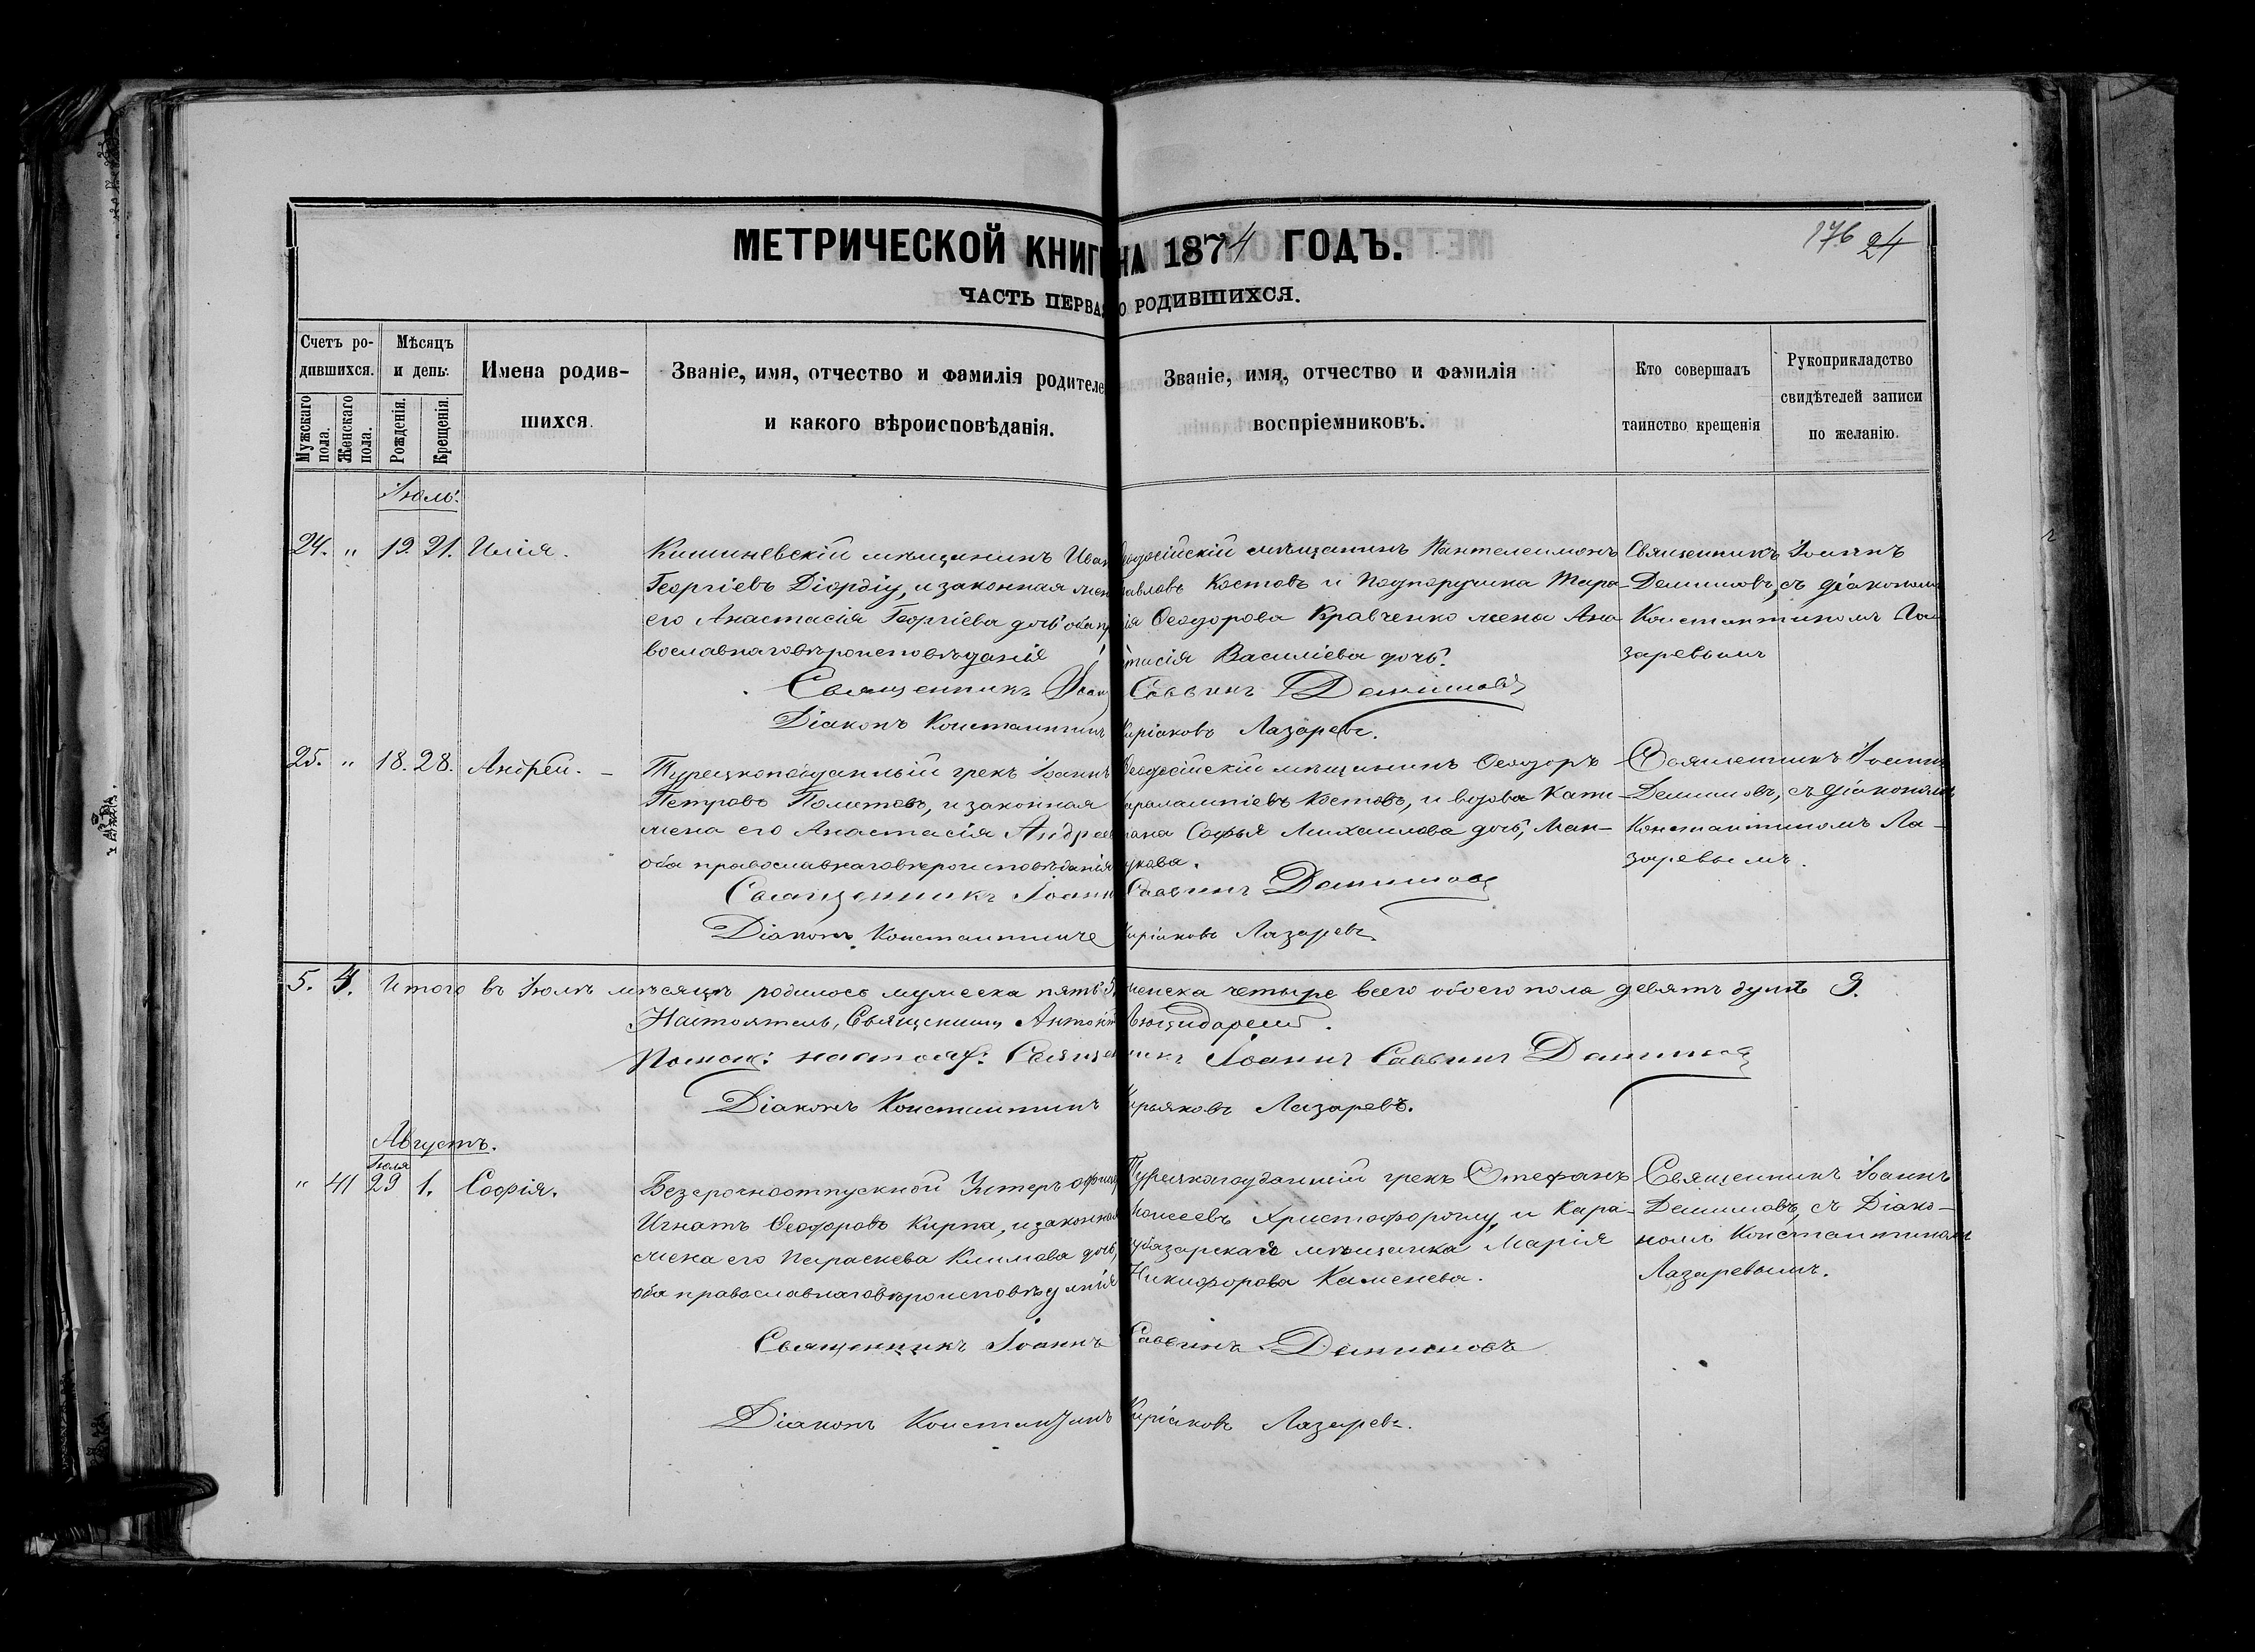 МЕТРИЧЕСКОЙ КНИГИ НА 1874 ГОДЪ.
176 24
ЧАСТЬ ПЕРВАЯ О РОДИВШИХСЯ.
Счетъ ро-
дившихся.
Мужскаго пола.
Женскаго пола.
Мѣсяцъ
и день.
Рожденія.
Крещенія.
Имена родив-
шихся.
Званіе, имя, отчество и фамилія родителей
и какого вѣроисповѣданія.
Званіе, имя, отчество и фамилія
воспріемниковъ.
Кто совершалъ
таинство крещенія
Рукоприкладство
свидѣтелей записи
по желанію.
Іюль.
24. " 19. 21. Илія.
Кишиневскій мѣщанинъ Иван
Георгіевъ Діордіу, и законная жен
его Анастасія Георгіева дочь оба пр
вославнаго вѣроисповѣданія
Ѳеодосійскій мѣщанинъ Пантелеимонъ
Павловъ Костовъ и Подпоручика
Ѳеодорова Кравченко жена Ана
стасія Василіева дочь.
Священникъ Іоаннъ
Демишовъ, съ діакономъ
Константиномъ Ла
заревымъ
Священникъ Іоан Саввинъ Демишовъ
Діаконъ Константинъ Киріаковъ Лазаревъ.
25. " 18. 28. Андрей. –
Турецкоподданный грекъ Іоаннъ
Петровъ Политовъ, и законная
жена его Анастасія Андрее
оба православнаго вѣроисповѣданія
Ѳеодосійскій мѣщанинъ Ѳеодоръ
Харалампіевъ Костовъ, и вдова Капи-
тана Софья Михаилова дочь, Ман-
укова.
Священникъ Іоаннъ
Демишовъ, съ діакономъ
Константиномъ Ла-
заревымъ.
Священникъ Іоанн Саввинъ Демишовъ
Діаконъ Константинъ Киріаковъ Лазаревъ
5. 4. Итого въ Іюлѣ мѣсяцѣ родилось мужеска пять женска четыре всего обоего пола девять душъ 9.
Настоятель, Священникъ Антоній
Помощ: настоят: Священникъ Іоаннъ Саввинъ Демишовъ
Діаконъ Константинъ Кирьяковъ Лазаревъ.
Августъ.
Іюля
" 41 29 1. Софія.
Безсрочноотпускной Унтеръ офице
Игнатъ Ѳеодоровъ Кирпа, и законная
жена его Параскева Климова дочь,
оба православнаго вѣроисповѣданія
Турецкоподданный грекъ Стефанъ
Моисеевъ Христофороглу, и Кара-
субазарская мѣщанка Марія
Никифорова Каменева.
Священникъ Іоаннъ
Демишовъ, съ Діако-
номъ Константиномъ
Лазаревымъ.
Священникъ Іоаннъ Саввинъ Демишовъ
Діаконъ Константинъ Киріаковъ Лазаревъ.